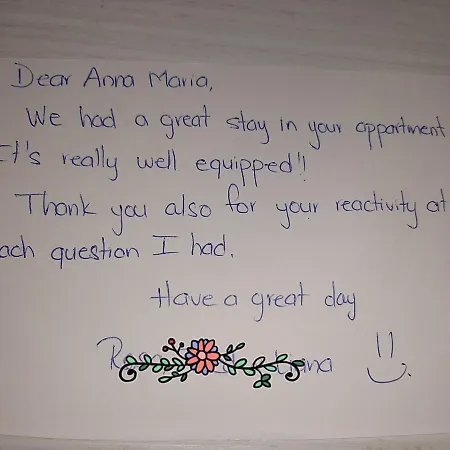 Dear Anna Maria,
We had a great stay in your appartment
It's really well equipped!
Thank you also for your reactivity at
each question I had.
Have a great day